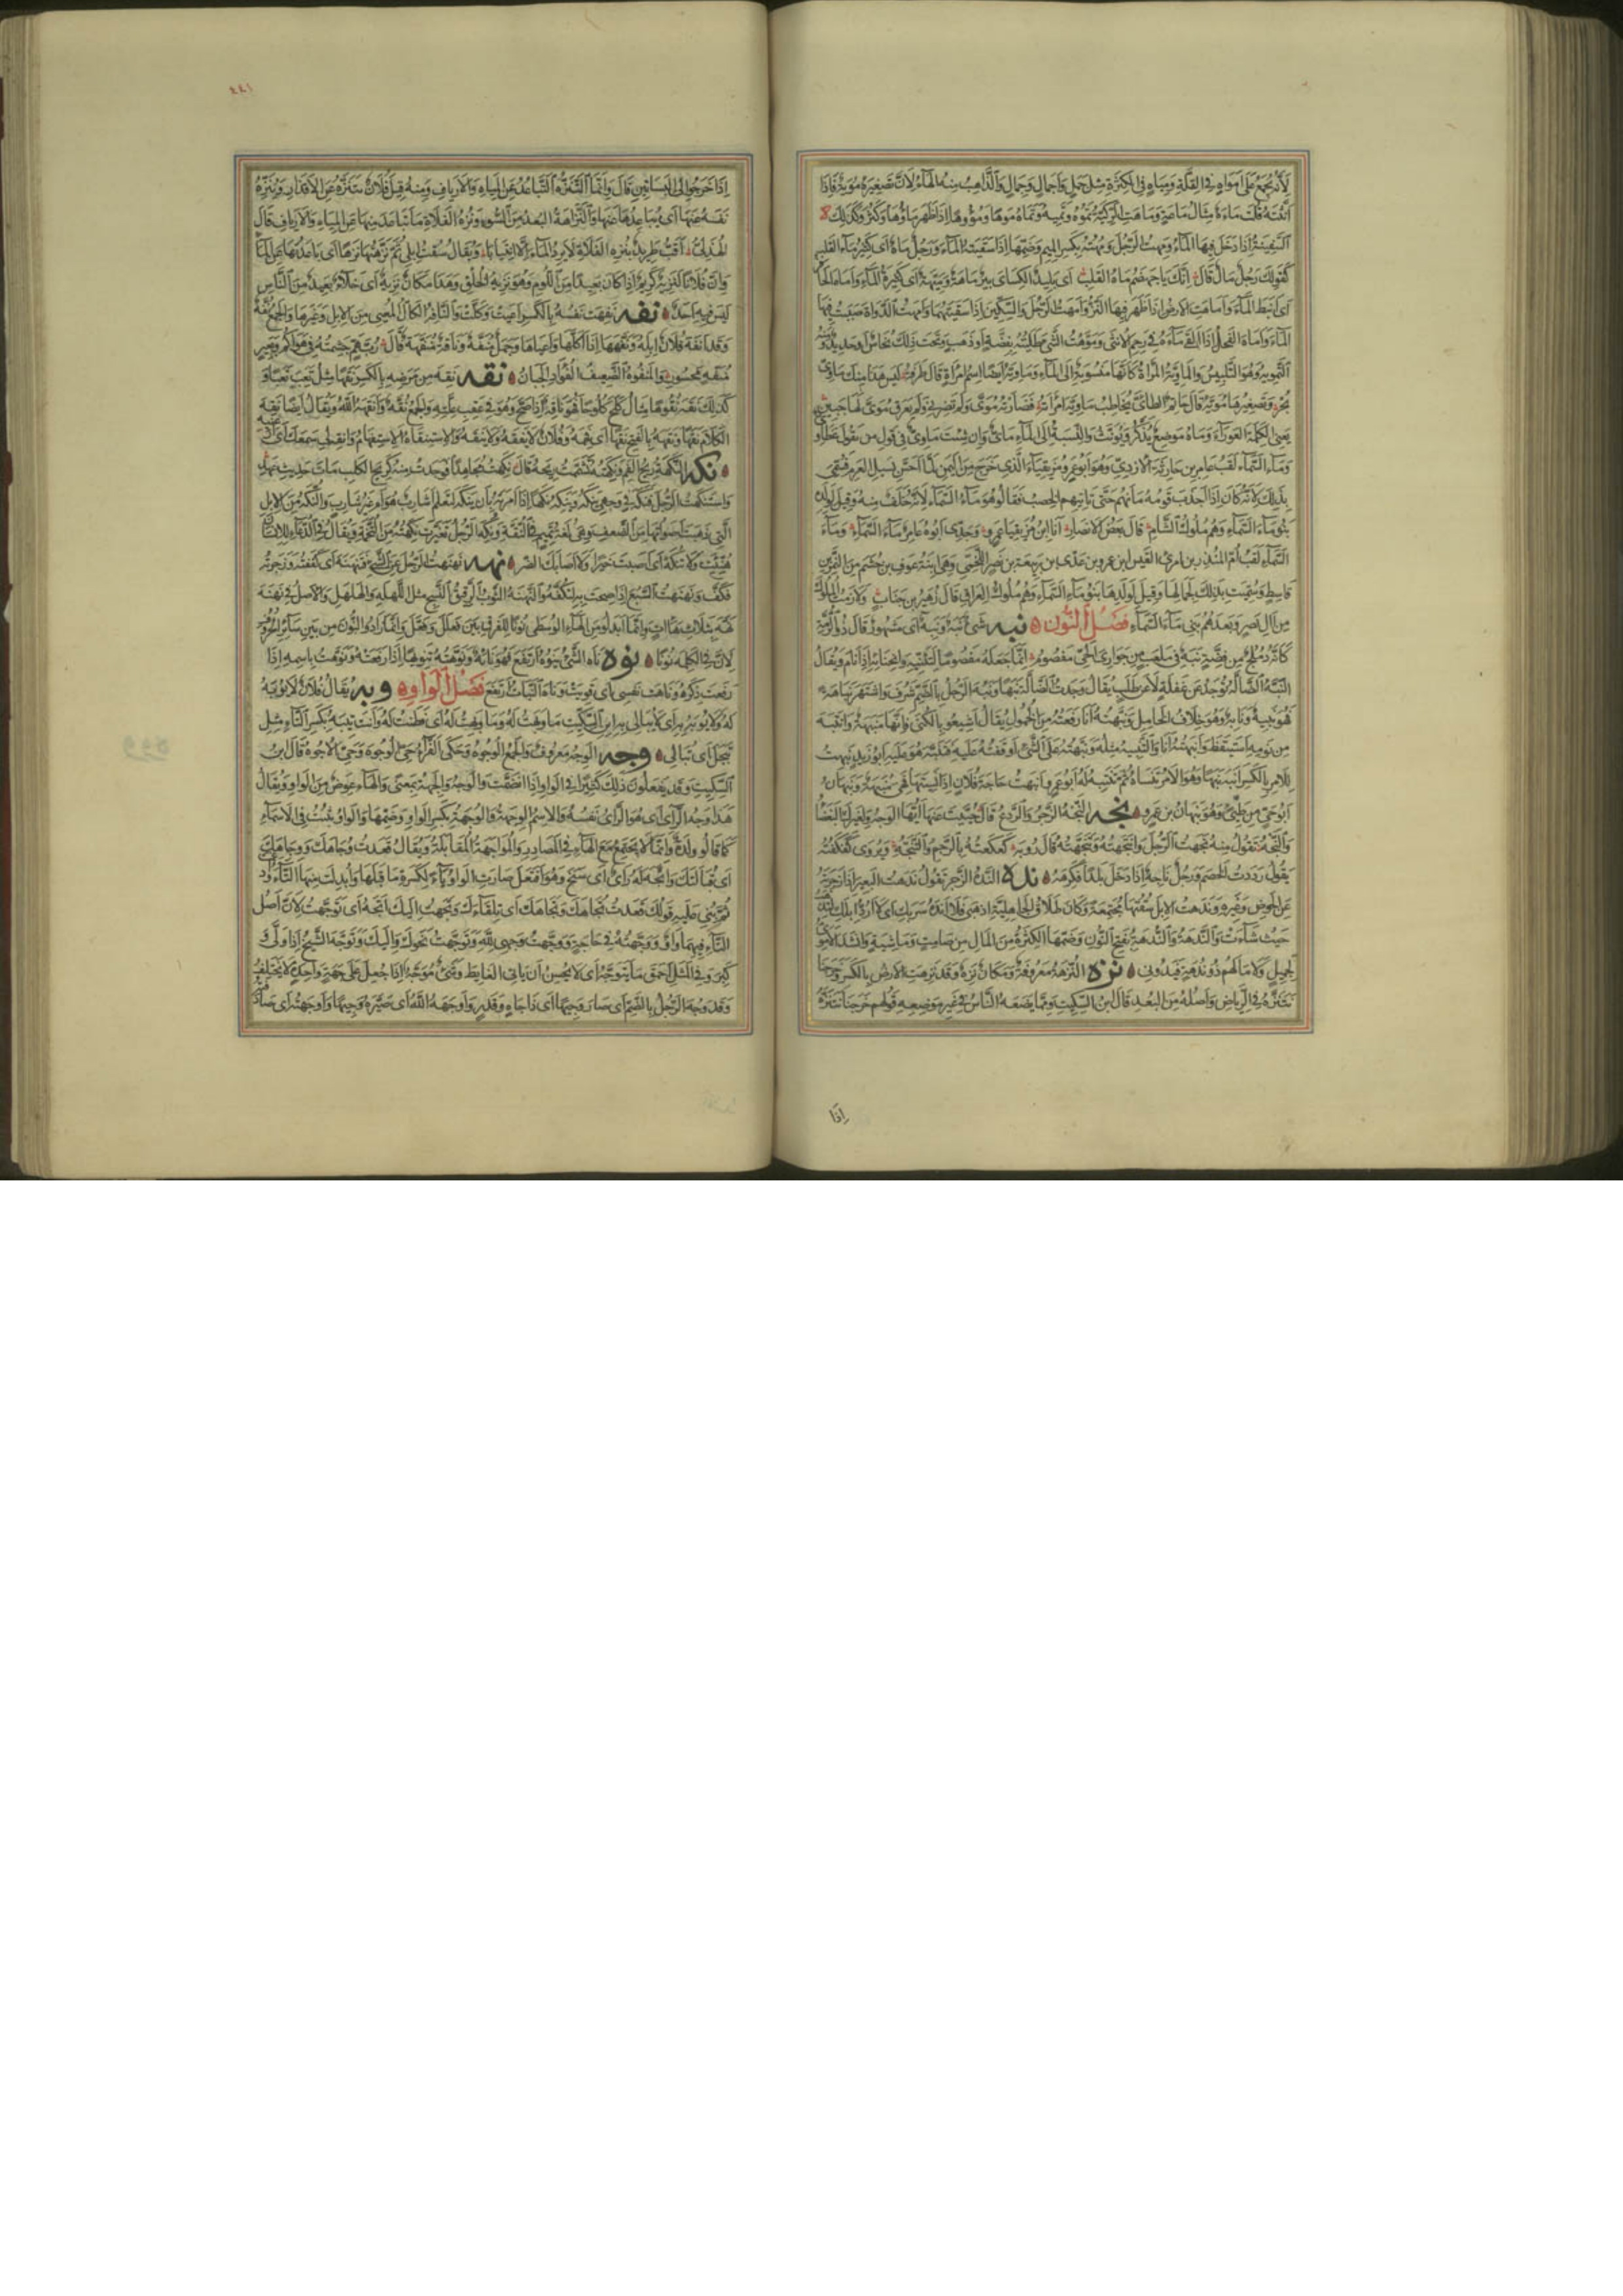 لأنه يجمع على أمواه في القلة ومياه في الكثرة مثل جمل وأجمال وجمال والذاهب منه الهاء لأن تصغيره مويه فإذا
أنثته قلت ماءة مثال ماعة وماهت الركية تموه وتميه وتماه موها ومؤوها إذا ظهر ماؤها وكثر وكذلك
السفينة إذا دخل فيها الماء ومهت الرجل ومهته بكسر الميم وضمها إذا سقيته الماء ورجل ماه أي كثير ماء القلب
كقولك رجل مال قال إنك يا جهضم ماه القلب أي بليد الكسائي بئر ماهة وميهة أي كثيرة الماء وأماه الحافر
أي أنبط الماء وأماهت الأرض إذا ظهر فيها النز وأمهت الرجل والسكين إذا سقيتهما وأمهت الدواة صببت فيها
الماء وأماه الفحل إذا ألقى ماءه في رحم الأنثى وموهت الشيء طليته بفضة أو ذهب وتحت ذلك نحاس أو حديد ومنه
التمويه وهو التلبيس والماوية المرآة كأنها منسوبة إلى الماء وماوية أيضا اسم امرأة قال طرفة ليس هذا منك ماوي
بحر وتصغيرها موية قال حاتم الطائي يخاطب ماوية امرأته فضارته موي ولم تضرني ولم يعرق موي لها جبيني
يعني الكلمة العوراء وماه موضع يذكر ويؤنث والنسبة إلى الماء مائي وإن شئت ماوي في قول من يقول عطاوي
وماء السماء لقب عامر بن حارثة الأزدي وهو أبو عمرو مزيقياء الذي خرج من اليمن لما أحس بسيل العرم فسمي
بذلك لأنه كان إذا أجدب قومه مانهم حتى يأتيهم الخصب فقالوا هو ماء السماء لأنه خلف منه وقيل لولده
بنو ماء السماء وهم ملوك الشام قال بعض الأنصار أنا ابن مزيقيا عمرو وجدي أبوه عامر ماء السماء وماء
السماء لقب أم المنذر بن امرئ القيس بن عمرو بن عدي بن ربيعة بن نصر اللخمي وهي ابنة عوف بن جشم من النمر بن
قاسط وسميت بذلك لجمالها وقيل لولدها بنو ماء السماء وهم ملوك العراق قال زهير بن جناب ولازمت الملوك
من آل نصر وبعدهم بني ماء السماء فصل النون نبه شيء نبه ونبه أي مشهور قال ذو الرمة
كأنه دملج من فضة نبه في ملعب من جواري الحي مفصوم إنما جعله مفصوما لتثنيه وانحنائه إذا نام ويقال
النبه الضالة توجد عن غفلة لا عن طلب يقال وجدت الضالة نبها ونبه الرجل بالضم شرف واشتهر نباهة
فهو نبيه ونابه وهو خلاف الخامل ونبهته أنا رفعته من الخمول يقال أشيعوا بالكنى فإنها منبهة وانتبه
من نومه استيقظ وأنبهته أنا والتنبيه مثله ونبهته على الشيء أوقفته عليه فتنبه هو عليه أبو زيد نبهت
للأمر بالكسر أنبه نبها وهو الأمر تنساه ثم تنتبه له أبو عمرو أنبهت حاجة فلان إذا نسيتها فهي منبهة ونبهان
أبو حي من طيئ وهو نبهان بن عمرو نجه النجه الزجر والردع قال حييت عنها أيها الوجه ولغيرك البغضا
والنجه تقول منه نجهت الرجل وانتجهته وتنجهته قال رؤبة كعكعته بالرجم والتنجه ويروى كفكفته
يقول رددت الخصم ورجل ناجه إذا دخل بلدا فكرهه نده النده الزجر تقول ندهت البعير إذا زجرته
عن الحوض وغيره وندهت الإبل سقتها مجتمعة وكان طلاق الجاهلية اذهبي فلا أنده سربك أي لا أرد إبلك لتذهب
حيث شاءت والندهة والندهة بفتح النون وضمها الكثرة من المال من صامت وماشية وأنشد الأموي
لجميل ولا مالهم ذو ندهة فيدوني نزه النزهة معروفة ومكان نزه وقد نزهت الأرض بالكسر وخرجنا
نتنزه في الرياض وأصله من البعد قال ابن السكيت ومما يضعه الناس في غير موضعه قولهم خرجنا نتنزه
إذا
٤٤١
إذا خرجوا إلى البساتين قال وإنما التنزه التباعد عن المياه والأرياف ومنه قيل فلان يتنزه عن الأقذار وينزه
نفسه عنها أي يباعدها عنها والنزاهة البعد من السوء ونزه الفلاة ما تباعد منها عن المياه والأرياف قال
الهذلي أقب طريد بنزه الفلاة لا يرد الماء إلا انتيابا ويقال سقيت إبلي ثم نزهتها نزها أي باعدتها عن الماء
وإن فلانا لنزيه كريم إذا كان بعيدا من اللؤم وهو نزيه الخلق وهذا مكان نزيه أي خلاء بعيد من الناس
ليس فيه أحد نفه نفهت نفسه بالكسر أعيت وكلت والنافه الكال المعيي من الإبل وغيرها والجمع نفه
وقد أنفه فلان إبله ونفهها إذا أكلها وأعياها وجمل منفه وناقة منفهة قال رب هم جشمته في هواكم وبعير
منفه محسور والمنفوه الضعيف الفؤاد الجبان نقه نقه من مرضه بالكسر نقها مثل تعب تعبا و
كذلك نقه نقوها مثال كلح كلوحا فهو ناقه إذا صح وهو في عقب علته والجمع نقه وأنقهه الله ويقال أيضا نقه
الكلام نقها ونقهه بالفتح نقها أي فهمه وفلان لا يفقه ولا ينقه والاستنقاه الاستفهام وأنقه لي سمعك أي
نكه النكهة ريح الفم ونكهته تشممت ريحه قال نكهت مجاهدا فوجدت منه كريح الكلب مات حديث عهد
واستنكهت الرجل فنكه في وجهي ينكه وينكه نكها إذا أمرته بأن ينكه لتعلم أشارب هو أم غير شارب والنكه من الإبل
التي ذهبت أصواتها من الضعف وهي لغة تميم في النقه ونكه الرجل تغيرت نكهته من التخمة ويقال في الدعاء للإنسان
هنيت ولا تنكه أي أصبت خيرا ولا أصابك الضر نهنه نهنهت الرجل عن الشيء فتنهنه أي كففته وزجرته
فكف ونهنهت السبع إذا صحت به لتكفه والنهنه الثوب الرقيق النسج مثل اللهله والهلهل والأصل في نهنه
نهه بثلاث هاءات وإنما أبدلوا من الهاء الوسطى نونا للفرق بين فعلل وفعل وإنما زادوا النون من بين سائر الحروف
لأن في الكلمة نونا نوه ناه الشيء ينوه ارتفع فهو نائه ونوهته تنويها إذا رفعته ونوهت باسمه إذا
رفعت ذكره وناهت نفسي أي قويت وناه النبات ارتفع فصل الواو وبه يقال فلان لا يوبه
له ولا يوبه به أي لا يبالى به ابن السكيت ما وبهت له وما وبهت له أي فطنت له وأنت تيبه بكسر التاء مثل
تيجل أي تبالي وجه الوجه معروف والجمع الوجوه وحكى الفراء حي الوجوه وحي الأجوه قال ابن
السكيت وقد يفعلون ذلك كثيرا في الواو إذا انضمت والوجه والجهة بمعنى والهاء عوض من الواو ويقال
هذا وجه الرأي أي هو الرأي نفسه والاسم الوجهة والوجهة بكسر الواو وضمها والواو تثبت في الأسماء
كما قالوا ولدة وإنما لا يجتمع مع الهاء في المصادر والمواجهة المقابلة ويقال قعدت وجاهك ووجاهك
أي قبالتك واتجه له رأي أي سنح وهو افتعل صارت الواو ياء لكسرة ما قبلها وأبدلت منها التاء وأدغمت
ثم بني عليه قولك قعدت تجاهك وتجاهك أي تلقاءك وتجهت إليك أتجه أي توجهت لأن أصل
التاء فيهما واو ووجهته في حاجة ووجهت وجهي لله وتوجهت نحوك وإليك وتوجه الشيخ إذا ولى و
كبر وفي المثل أحمق ما يتوجه أي لا يحسن أن يأتي الغائط وشيء موجه إذا جعل على جهة واحدة لا يختلف
وقد وجه الرجل بالضم أي صار وجيها أي ذا جاه وقدر وأوجهه الله أي صيره وجيها وأوجهته أي صادفته